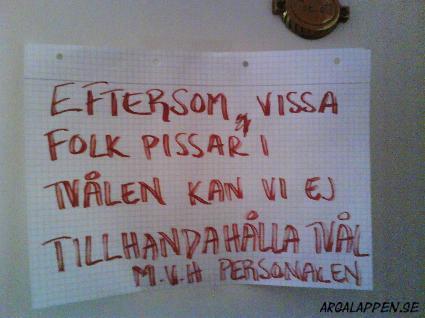 EFTERSOM VISSA
FOLK PISSAR I
TVÅLEN KAN VI EJ
TILLHANDAHÅLLA TVÅL
M.V.H PERSONALEN
ARGALAPPEN.SE